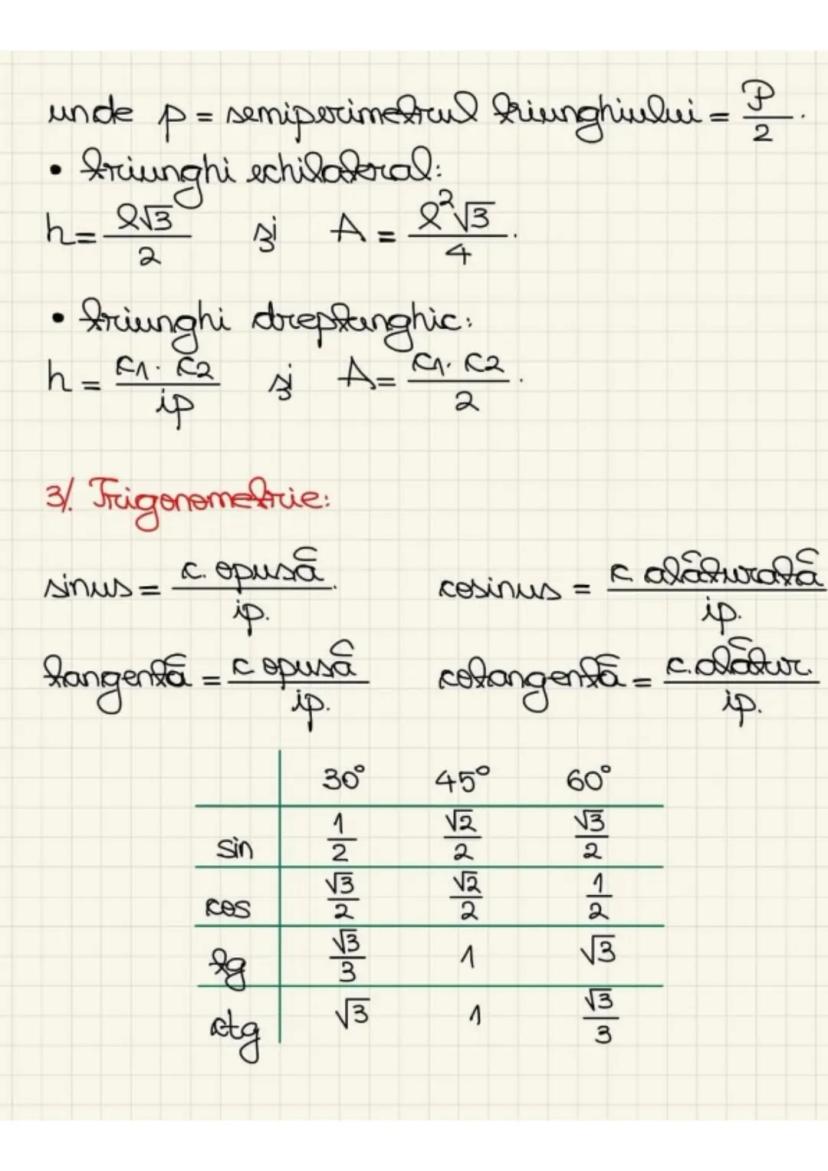 unde p = semiperimetrul triunghiului = P/2.
• triunghi echilateral:
h = l√3/2 și A = l²√3/4.
• triunghi dreptunghic:
h = c1 · c2/ip și A = c1 · c2/2.
3/. Trigonometrie:
sinus = c. opusă/ip. cosinus = c alăturată/ip.
tangentă = c opusă/ip. cotangentă = c. alătur./ip.
30° 45° 60°
sin 1/2 √2/2 √3/2
cos √3/2 √2/2 1/2
tg √3/3 1 √3
ctg √3 1 √3/3